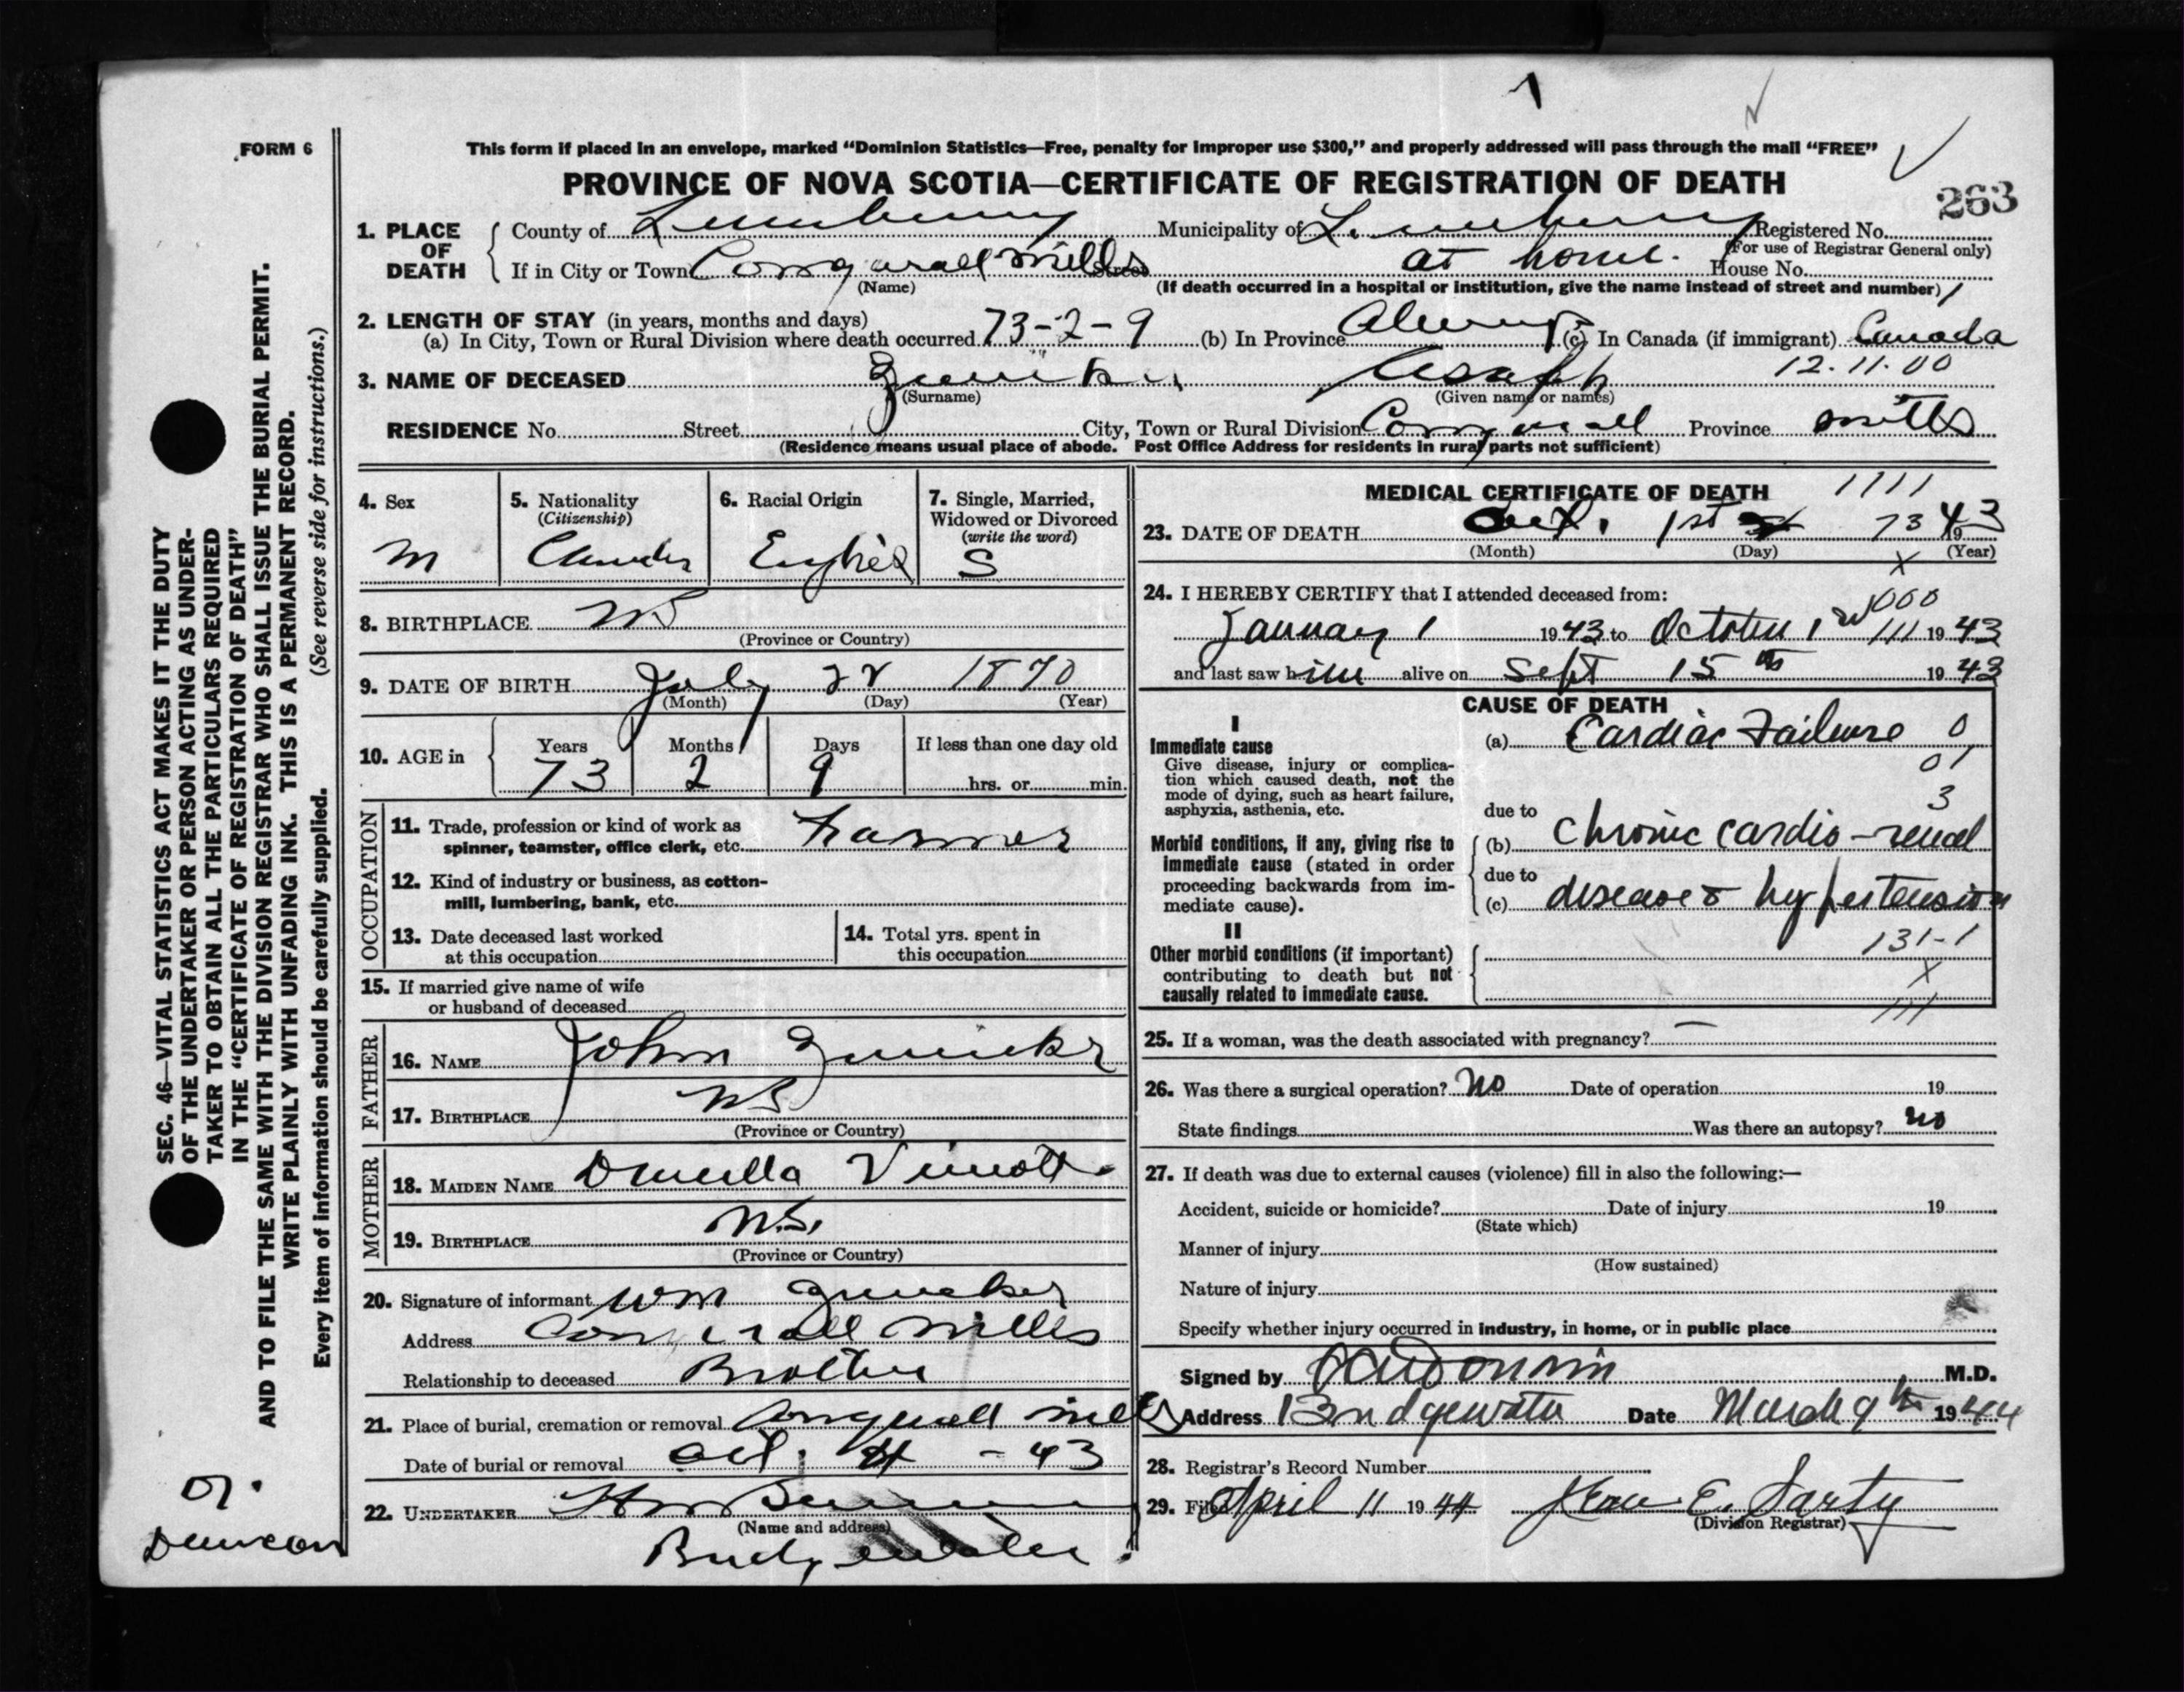 FORM 6
This form if placed in an envelope, marked “Dominion Statistics—Free, penalty for improper use $300,” and properly addressed will pass through the mail “FREE”
PROVINCE OF NOVA SCOTIA—CERTIFICATE OF REGISTRATION OF DEATH
263
1. PLACE OF DEATH
County of Lunenburg Municipality of Lunenburg Registered No.
(For use of Registrar General only)
If in City or Town Conquerall Mills Street at home. House No.
(Name) (If death occurred in a hospital or institution, give the name instead of street and number)
2. LENGTH OF STAY (in years, months and days)
(a) In City, Town or Rural Division where death occurred 73-2-9 (b) In Province Always (c) In Canada (if immigrant) Canada
12.11.00
3. NAME OF DECEASED Zwicker Asaph
(Surname) (Given name or names)
RESIDENCE No. Street City, Town or Rural Division Conquerall Province Mills
(Residence means usual place of abode. Post Office Address for residents in rural parts not sufficient)
4. Sex
M
5. Nationality
(Citizenship)
6. Racial Origin
English
7. Single, Married, Widowed or Divorced
(write the word)
S
8. BIRTHPLACE NS
(Province or Country)
9. DATE OF BIRTH July 22 1870
(Month) (Day) (Year)
10. AGE in
Years Months Days If less than one day old
73 2 9 hrs. or min.
OCCUPATION
11. Trade, profession or kind of work as
spinner, teamster, office clerk, etc. Farmer
12. Kind of industry or business, as cotton-
mill, lumbering, bank, etc.
13. Date deceased last worked
at this occupation
14. Total yrs. spent in
this occupation
15. If married give name of wife
or husband of deceased
FATHER
16. NAME John Zwicker
17. BIRTHPLACE NS
(Province or Country)
MOTHER
18. MAIDEN NAME Drucilla Vienott
19. BIRTHPLACE N.S.
(Province or Country)
20. Signature of informant Wm Zwicker
Address Conquerall Mills
Relationship to deceased Brother
21. Place of burial, cremation or removal Conquerall Mills
Date of burial or removal Oct. 4 - 43
22. UNDERTAKER
(Name and address)
Bridgewater
MEDICAL CERTIFICATE OF DEATH
1111
23. DATE OF DEATH Oct. 1st 73 1943
(Month) (Day) (Year)
X
24. I HEREBY CERTIFY that I attended deceased from:
000
January 1 1943 to October 1 111 1943
and last saw him alive on Sept 15th 1943
CAUSE OF DEATH
I
Immediate cause
Give disease, injury or complica-
tion which caused death, not the
mode of dying, such as heart failure,
asphyxia, asthenia, etc.
(a) Cardiac Failure 0
01
3
due to
Morbid conditions, if any, giving rise to
immediate cause (stated in order
proceeding backwards from im-
mediate cause).
(b) Chronic cardio-renal
due to
(c) disease & hypertension
131-1
II
Other morbid conditions (if important)
contributing to death but not
causally related to immediate cause.
X
111
25. If a woman, was the death associated with pregnancy? —
26. Was there a surgical operation? No Date of operation 19
State findings Was there an autopsy? No
27. If death was due to external causes (violence) fill in also the following:—
Accident, suicide or homicide? Date of injury 19
(State which)
Manner of injury
(How sustained)
Nature of injury
Specify whether injury occurred in industry, in home, or in public place
Signed by M.D.
Address Bridgewater Date March 9th 1944
28. Registrar’s Record Number
29. Filed April 11 1944 E. Sarty
(Division Registrar)
SEC. 46—VITAL STATISTICS ACT MAKES IT THE DUTY
OF THE UNDERTAKER OR PERSON ACTING AS UNDER-
TAKER TO OBTAIN ALL THE PARTICULARS REQUIRED
IN THE “CERTIFICATE OF REGISTRATION OF DEATH”
AND TO FILE THE SAME WITH THE DIVISION REGISTRAR WHO SHALL ISSUE THE BURIAL PERMIT.
WRITE PLAINLY WITH UNFADING INK. THIS IS A PERMANENT RECORD.
Every item of information should be carefully supplied. (See reverse side for instructions.)
Duncan